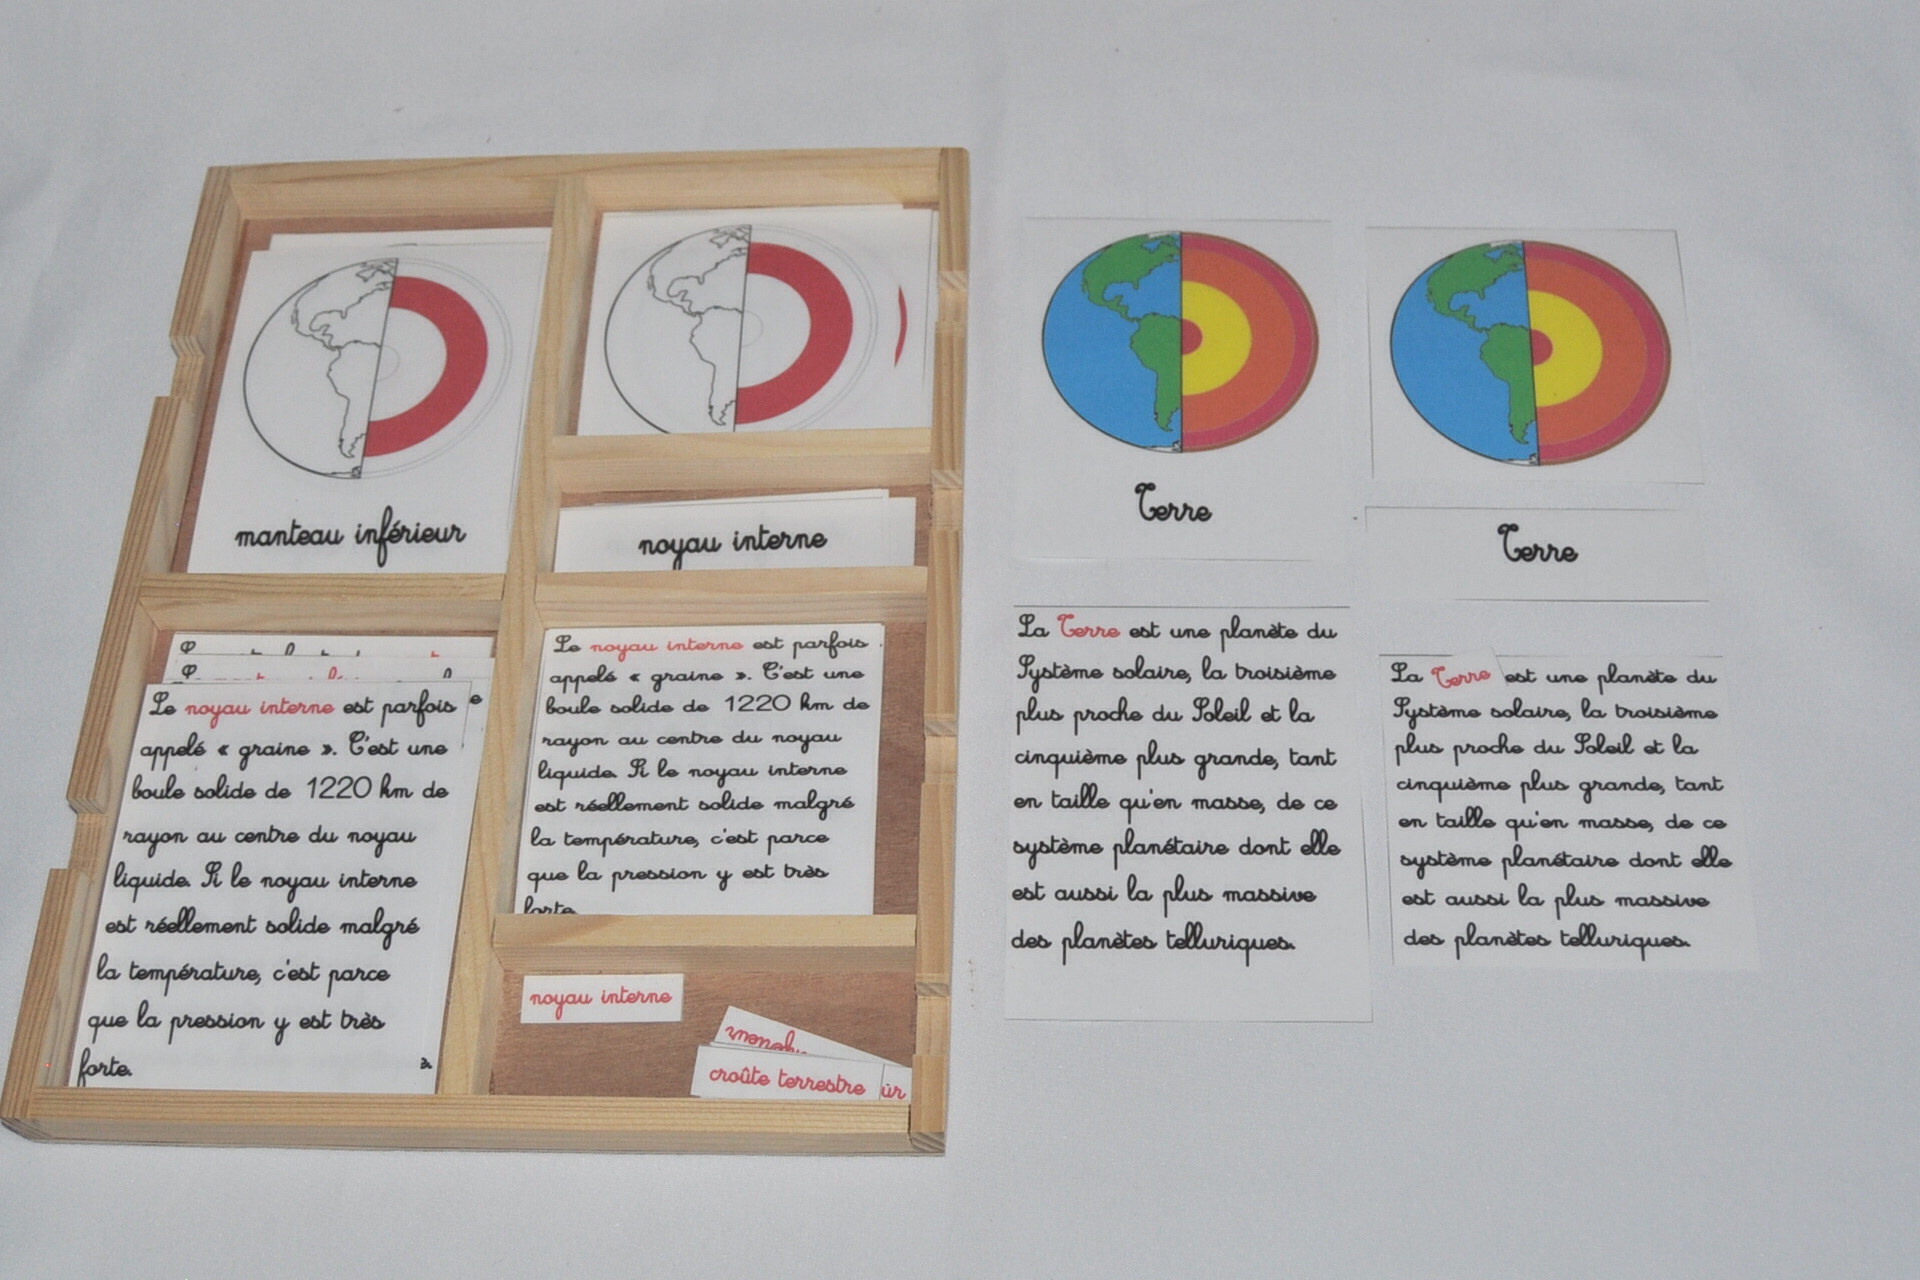 manteau inférieur
noyau interne
Le noyau interne est parfois
appelé « graine ». C'est une
boule solide de 1220 km de
rayon au centre du noyau
liquide. Si le noyau interne
est réellement solide malgré
la température, c'est parce
que la pression y est très
forte.
Le noyau interne est parfois
appelé « graine ». C'est une
boule solide de 1220 km de
rayon au centre du noyau
liquide. Si le noyau interne
est réellement solide malgré
la température, c'est parce
que la pression y est très
forte.
noyau interne
croûte terrestre
ur
Terre
Terre
La Terre est une planète du
Système solaire, la troisième
plus proche du Soleil et la
cinquième plus grande, tant
en taille qu'en masse, de ce
système planétaire dont elle
est aussi la plus massive
des planètes telluriques.
La Terre est une planète du
Système solaire, la troisième
plus proche du Soleil et la
cinquième plus grande, tant
en taille qu'en masse, de ce
système planétaire dont elle
est aussi la plus massive
des planètes telluriques.